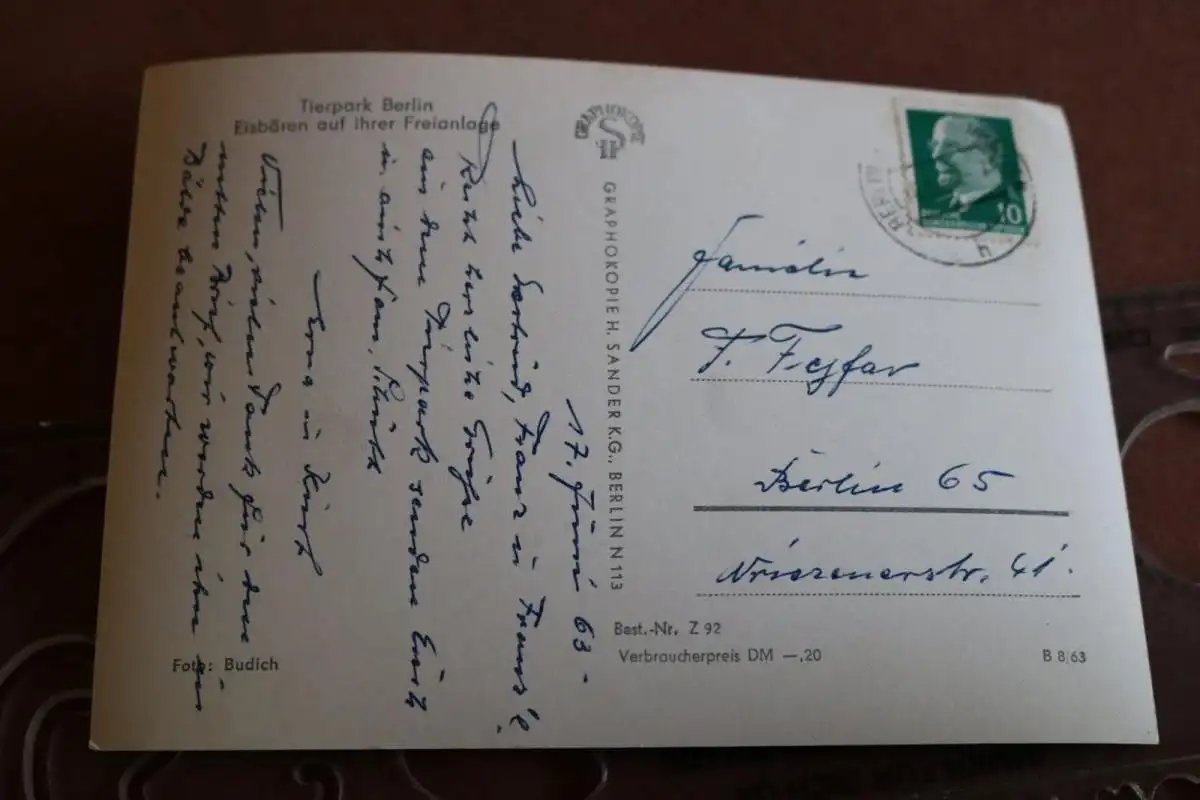 Tierpark Berlin
Eisbären auf ihrer Freianlage
17. Juni 63.
Liebe Gertrud, Franz u.
Recht herzliche Grüße
aus dem Tierpark senden Euch
Erna u. Kurt
Vielen, vielen Dank für den
netten Brief, wir werden ihn in
Bälde beantworten.
Foto: Budich
GRAPHOKOPIE
GRAPHOKOPIE H. SANDER K.G., BERLIN N 113
BERLIN
10
Familie
F. Fejfar
Berlin 65
Wriezenerstr. 41.
Best.-Nr. Z 92
Verbraucherpreis DM —,20
B 8/63